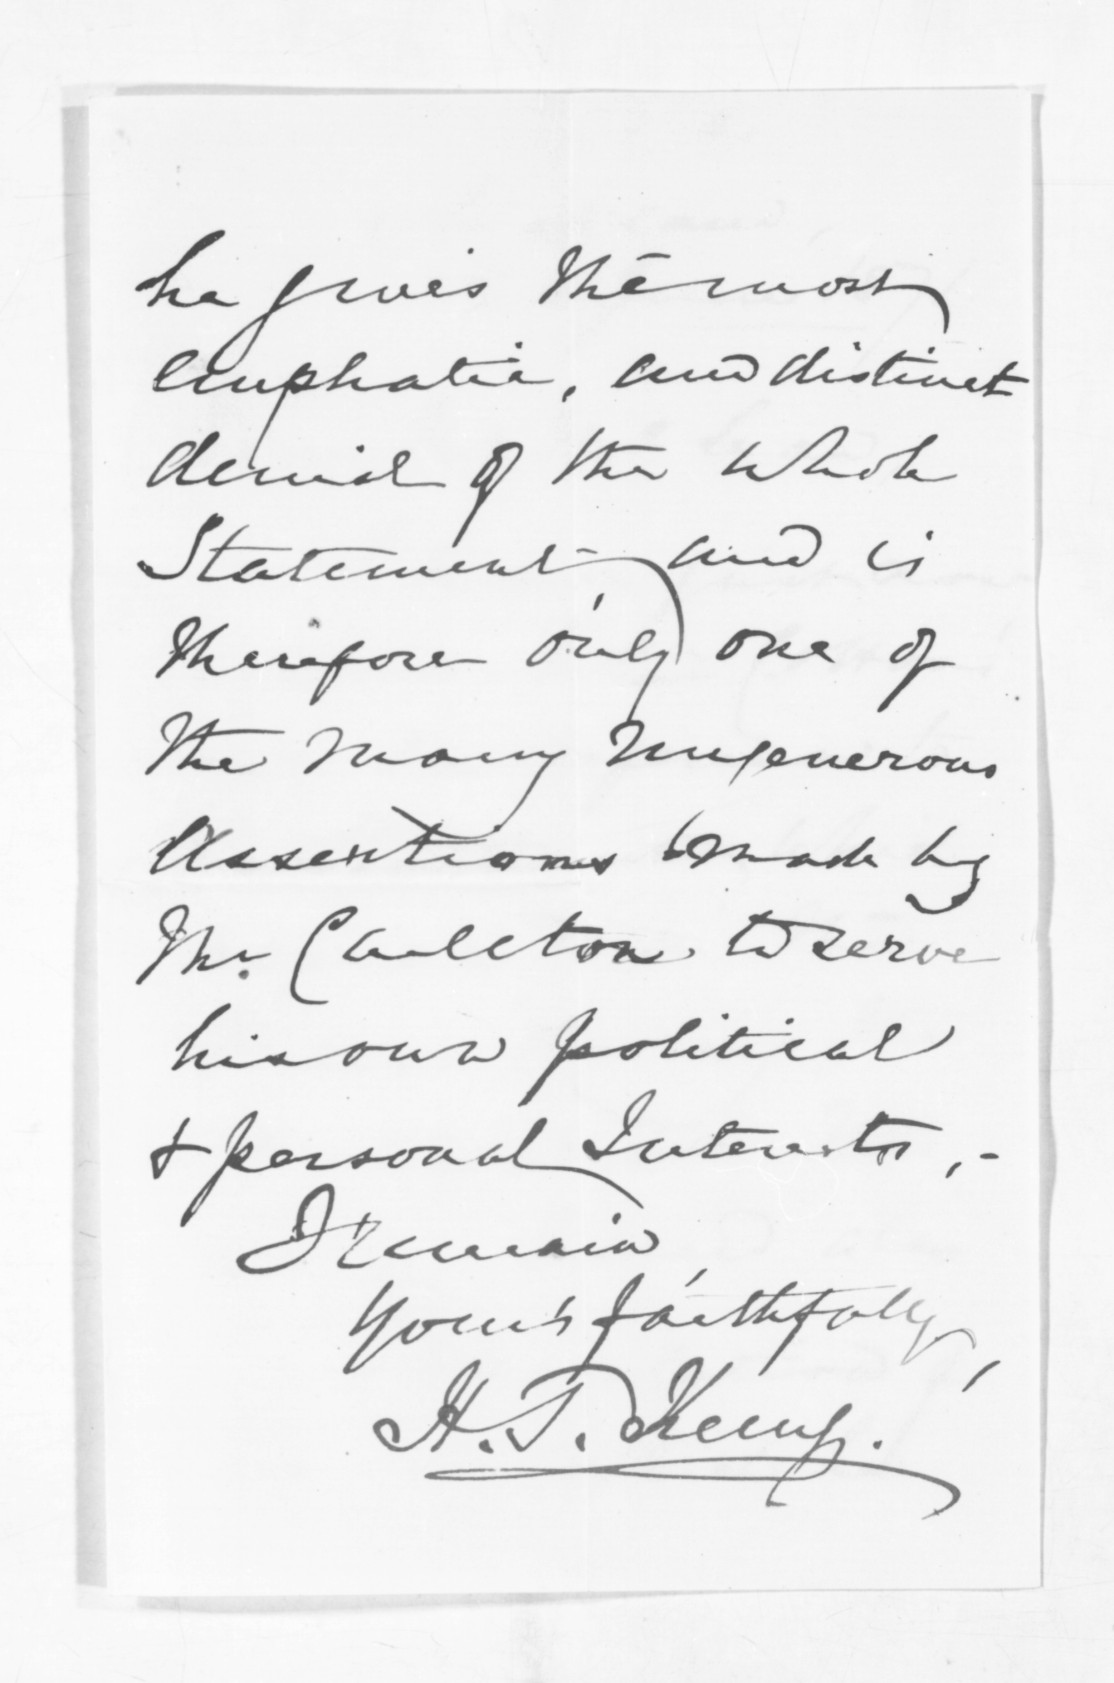 he gives the most
emphatic, and distinct
denial of the whole
Statement and is
therefore only one of
the many ungenerous
assertions made by
Mr. Carleton to serve
his own political
& personal Interests, -
I remain
Yours faithfully,
H. T. Kemp.